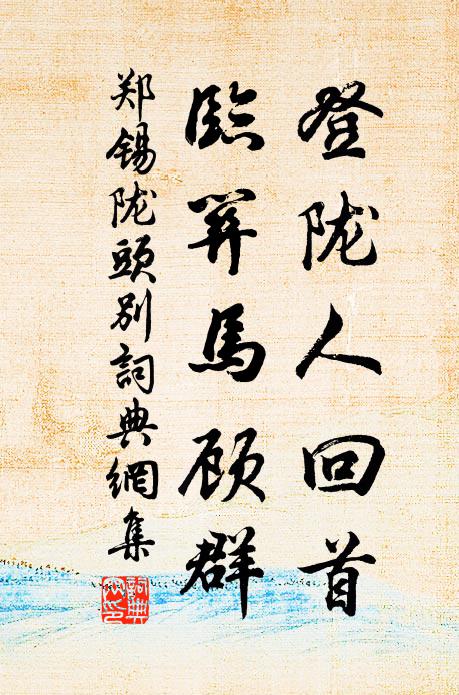 登陇人回首
临关马顾群
郑锡陇頭別詞典網集
詞典